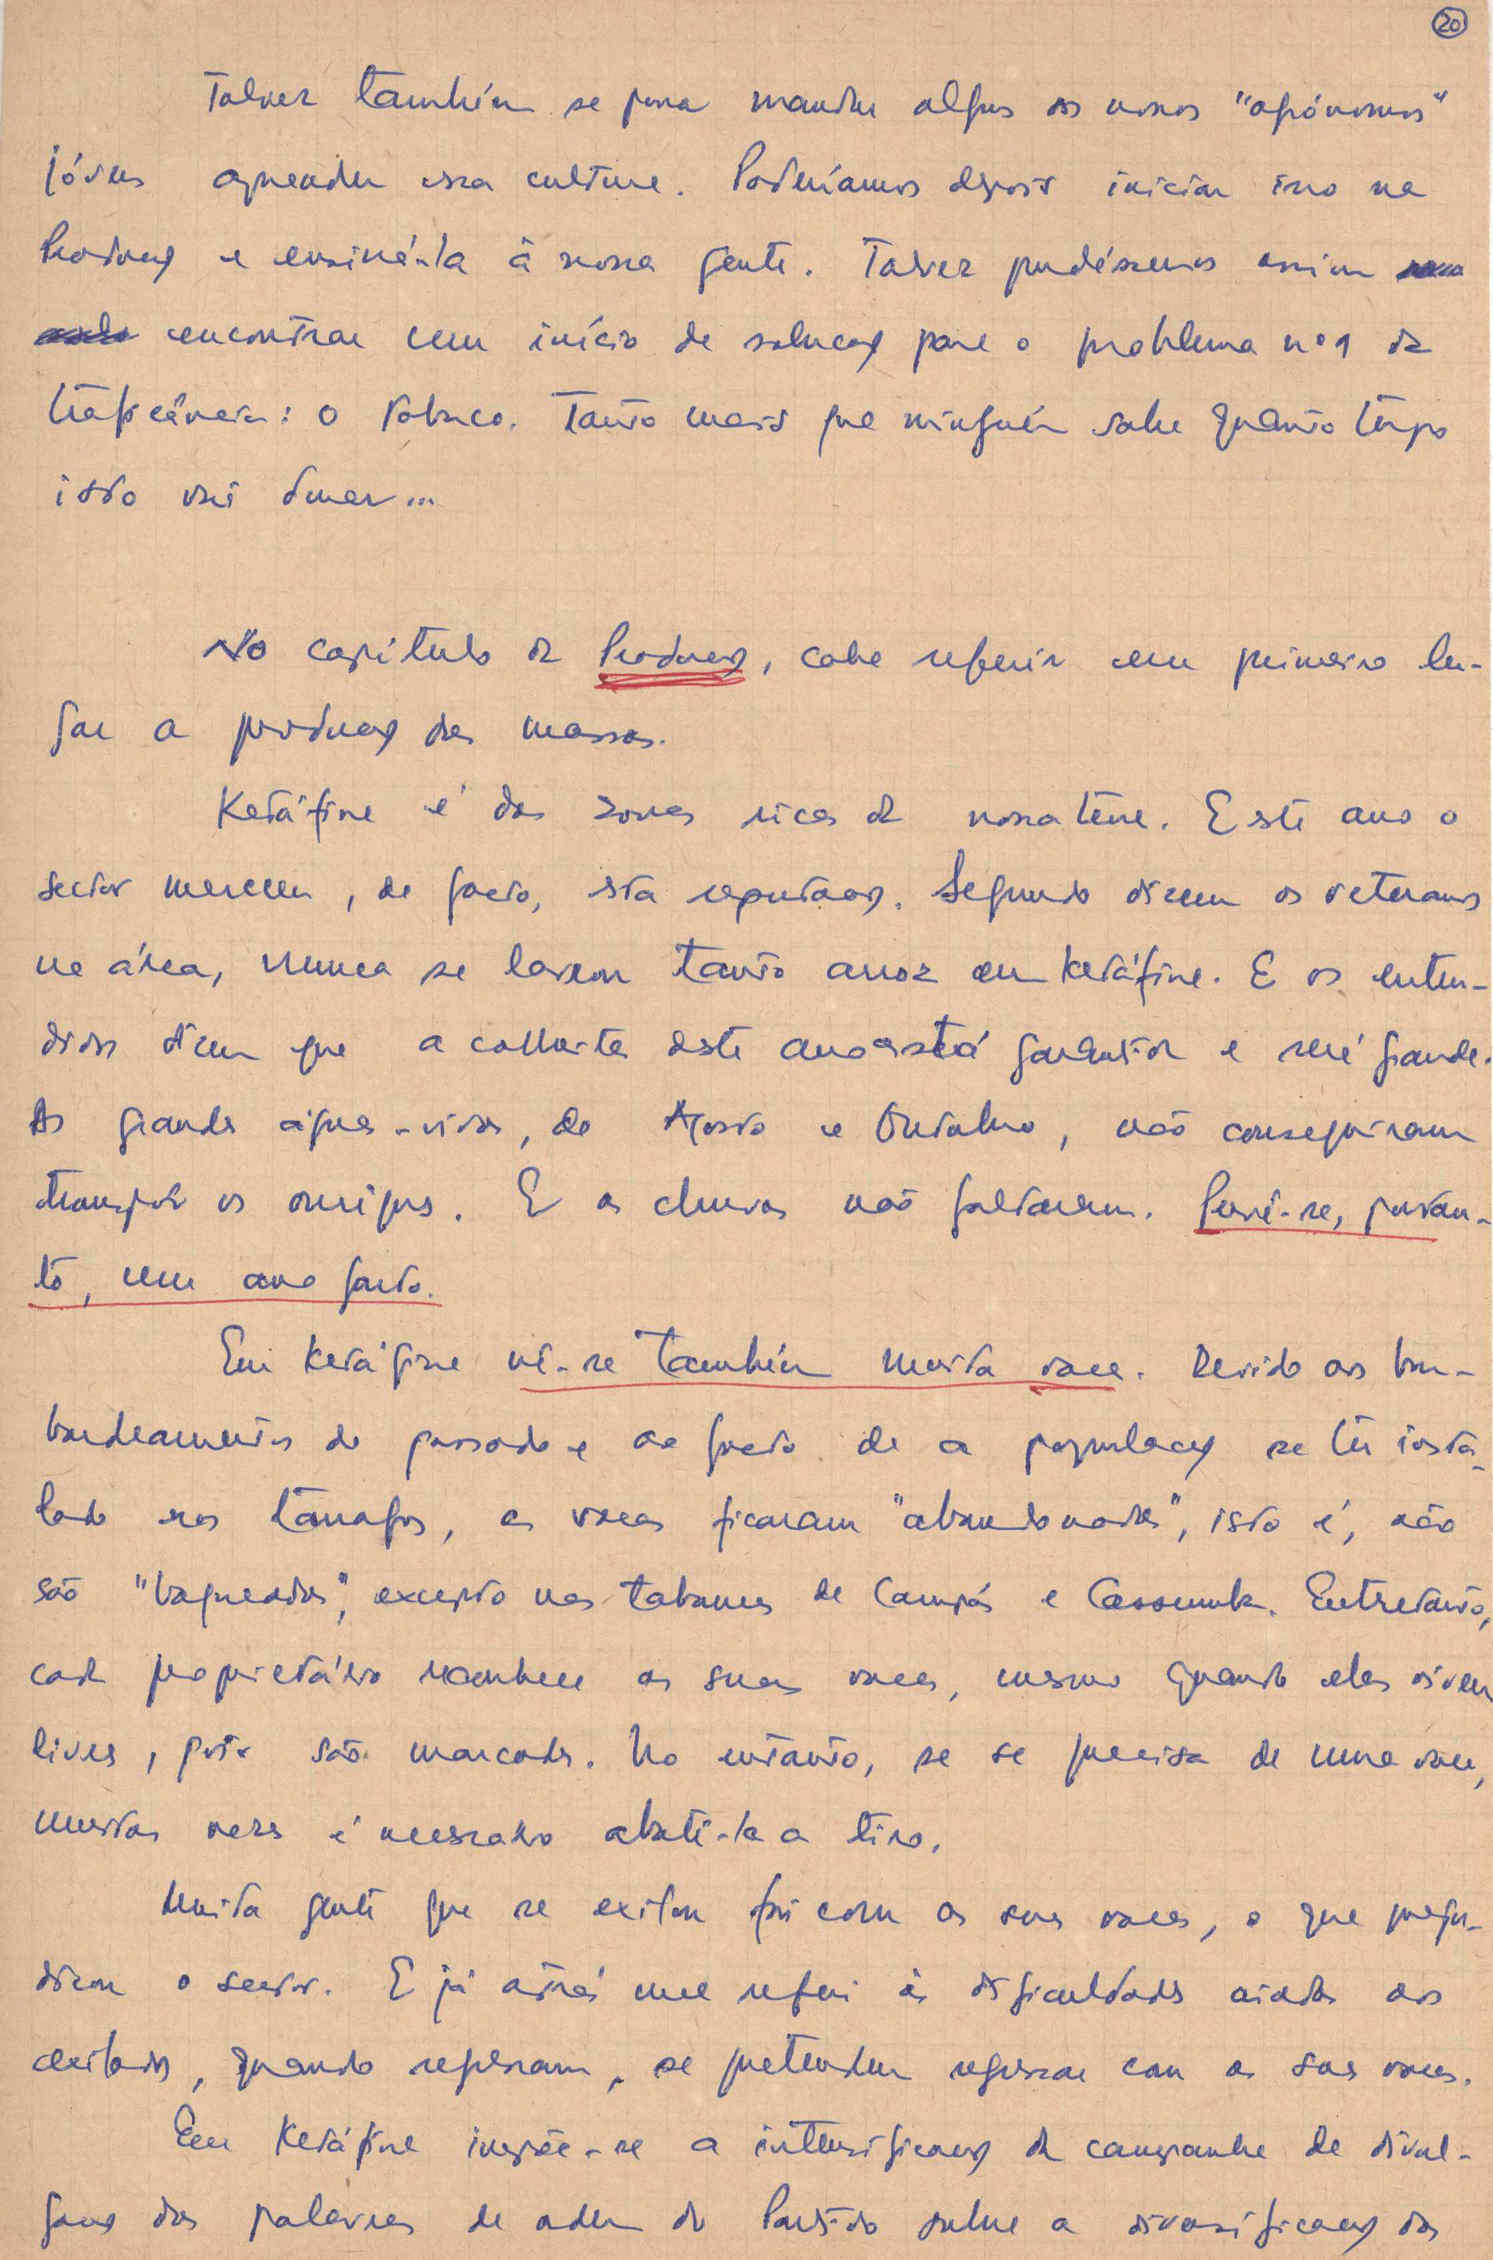 20
Talvez também se possa mandar alguns dos nossos "agrónomos"
jóvens aprender essa cultura. Poderíamos depois iniciar isso na
Produção e ensiná-la à nossa gente. Talvez pudéssemos assim
encontrar um início de solução para o problema nº 1 da
traficância: o tabaco. Tanto mais que ninguém sabe quanto tempo
isto vai durar...
No capítulo da Produção, cabe referir em primeiro lu-
gar a produção das massas.
Ketáfine é das zonas ricas da nossa terra. Este ano o
sector mereceu, de facto, esta reputação. Segundo dizem os veteranos
na área, nunca se lavrou tanto arroz em Ketáfine. E os enten-
didos dizem que a colheita deste ano está garantida e será grande.
As grandes águas-vivas, de Agosto e Outubro, não conseguiram
transpôr os ouriques. E as chuvas não faltaram. Prevê-se, portan-
to, um ano farto.
Em Ketáfine vê-se também muita vaca. Devido aos bom-
bardeamentos do passado e ao facto de a população se ter insta-
lado nos tarrafos, as vacas ficaram "abandonadas", isto é, não
são "vaqueadas", excepto nas tabancas de Campás e Cassumba. Entretanto,
cada proprietário reconhece as suas vacas, mesmo quando elas vivem
livres, pois são marcadas. No entanto, se se precisa de uma vaca,
muitas vezes é necessário abatê-la a tiro.
Muita gente que se exilou foi com as suas vacas, o que preju-
dicou o sector. E já atrás me referi às dificuldades criadas aos
exilados, quando regressam, se pretendem regressar com as suas vacas.
Em Ketáfine impõe-se a intensificação da campanha de divul-
gação das palavras de ordem do Partido sobre a diversificação das